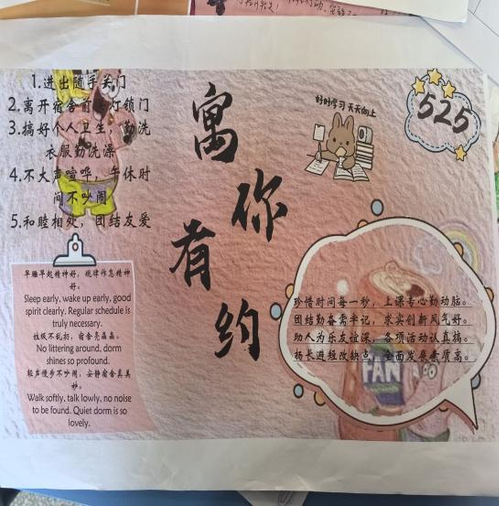 1.进出随手关门
2.离开宿舍首关灯锁门
3.搞好个人卫生，勤洗
衣服勤洗澡
4.不大声喧哗，午休时
间不吵闹
5.和睦相处，团结友爱
寓你有约
好好学习 天天向上
525
早睡早起精神好，规律作息精神
好。
Sleep early, wake up early, good
spirit clearly. Regular schedule is
truly necessary.
垃圾不乱扔，宿舍亮晶晶。
No littering around, dorm
shines so profound.
轻声慢步不吵闹，安静宿舍真美
妙。
Walk softly, talk lowly, no noise
to be found. Quiet dorm is so
lovely.
珍惜时间每一秒，上课专心勤动脑。
团结勤奋需牢记，求实创新风气好。
助人为乐友谊深，各项活动认真搞。
扬长避短改缺点，全面发展素质高。
FAN